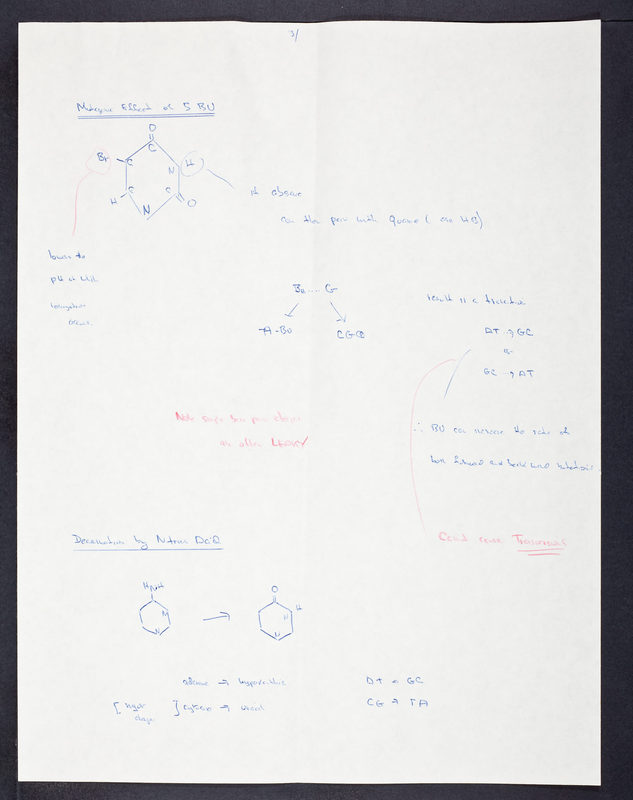 3/
Mutagenic Effect of 5 BU
O
C
Br C N H
H C C O
N
if absent
can then pair with Guanine ( one HB)
lowers the
pH at which
ionization
occurs.
Bu .... G
A-BU CG
result is a transition
AT → GC
or
GC → AT
Note single base pair change
are often LEAKY
∴ BU can increase the rate of
both forward and backward mutations
Could cause
Deamination by Nitrous Acid
HNH
N
N
→
O
H
N
N
adenine → hypoxanthine AT → GC
[ ] cytosine → uracil CG → TA